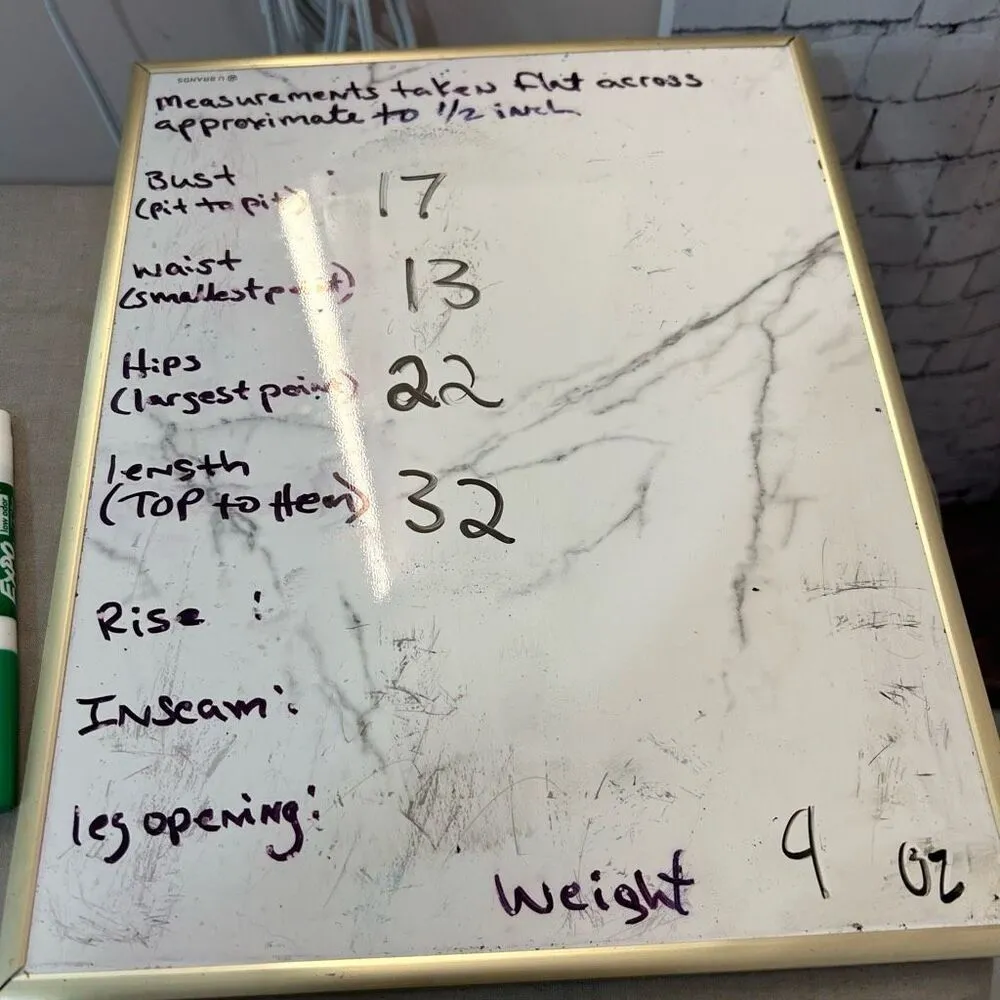 U BRANDS
measurements taken flat across
approximate to 1/2 inch
Bust
(pit to pit) : 17
waist
(smallest point) 13
Hips
(largest point) 22
length
(TOP to Hem) 32
Rise :
INseam :
leg opening :
Weight 9 oz
EXPO low odor